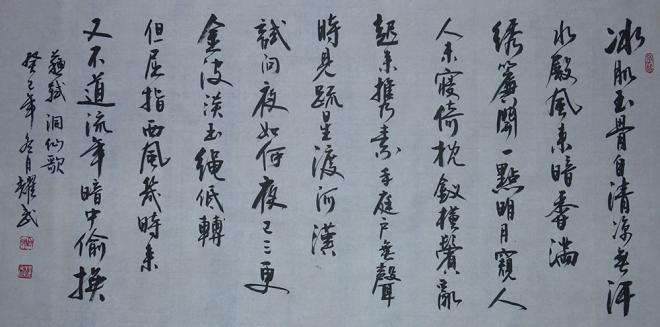 冰肌玉骨自清凉无汗
水殿風来暗香满
绣簾開一點明月窺人
人未寝倚枕釵横鬓亂
起来携素手庭户無聲
時見疏星渡河漢
試问夜如何夜已三更
金波淡玉绳低轉
但屈指西風幾時来
又不道流年暗中偷换
蘇轼洞仙歌
癸巳年冬月耀武